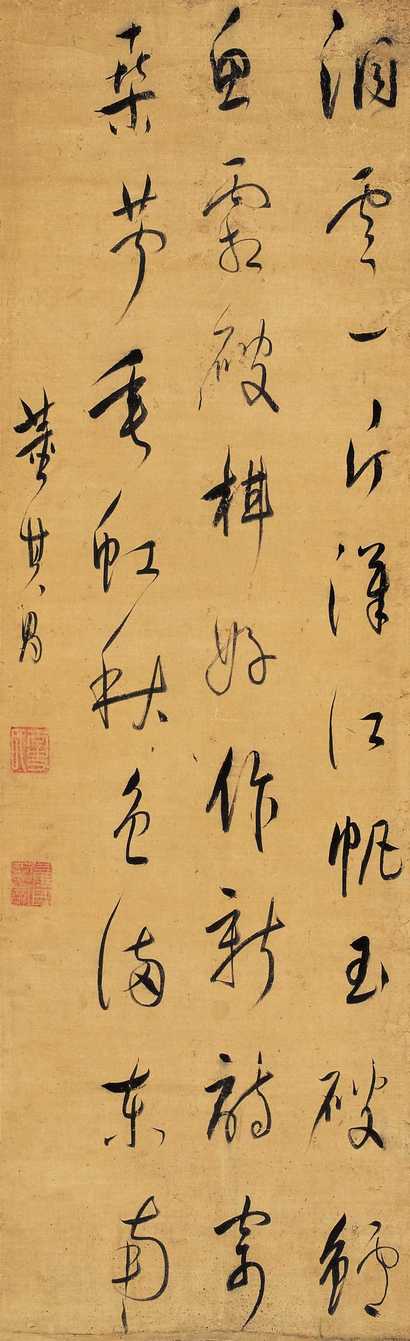 雲一片漢江帆玉破鱸
魚霜破柑好作新詩寄
桑苧垂虹秋色滿東南
董其昌